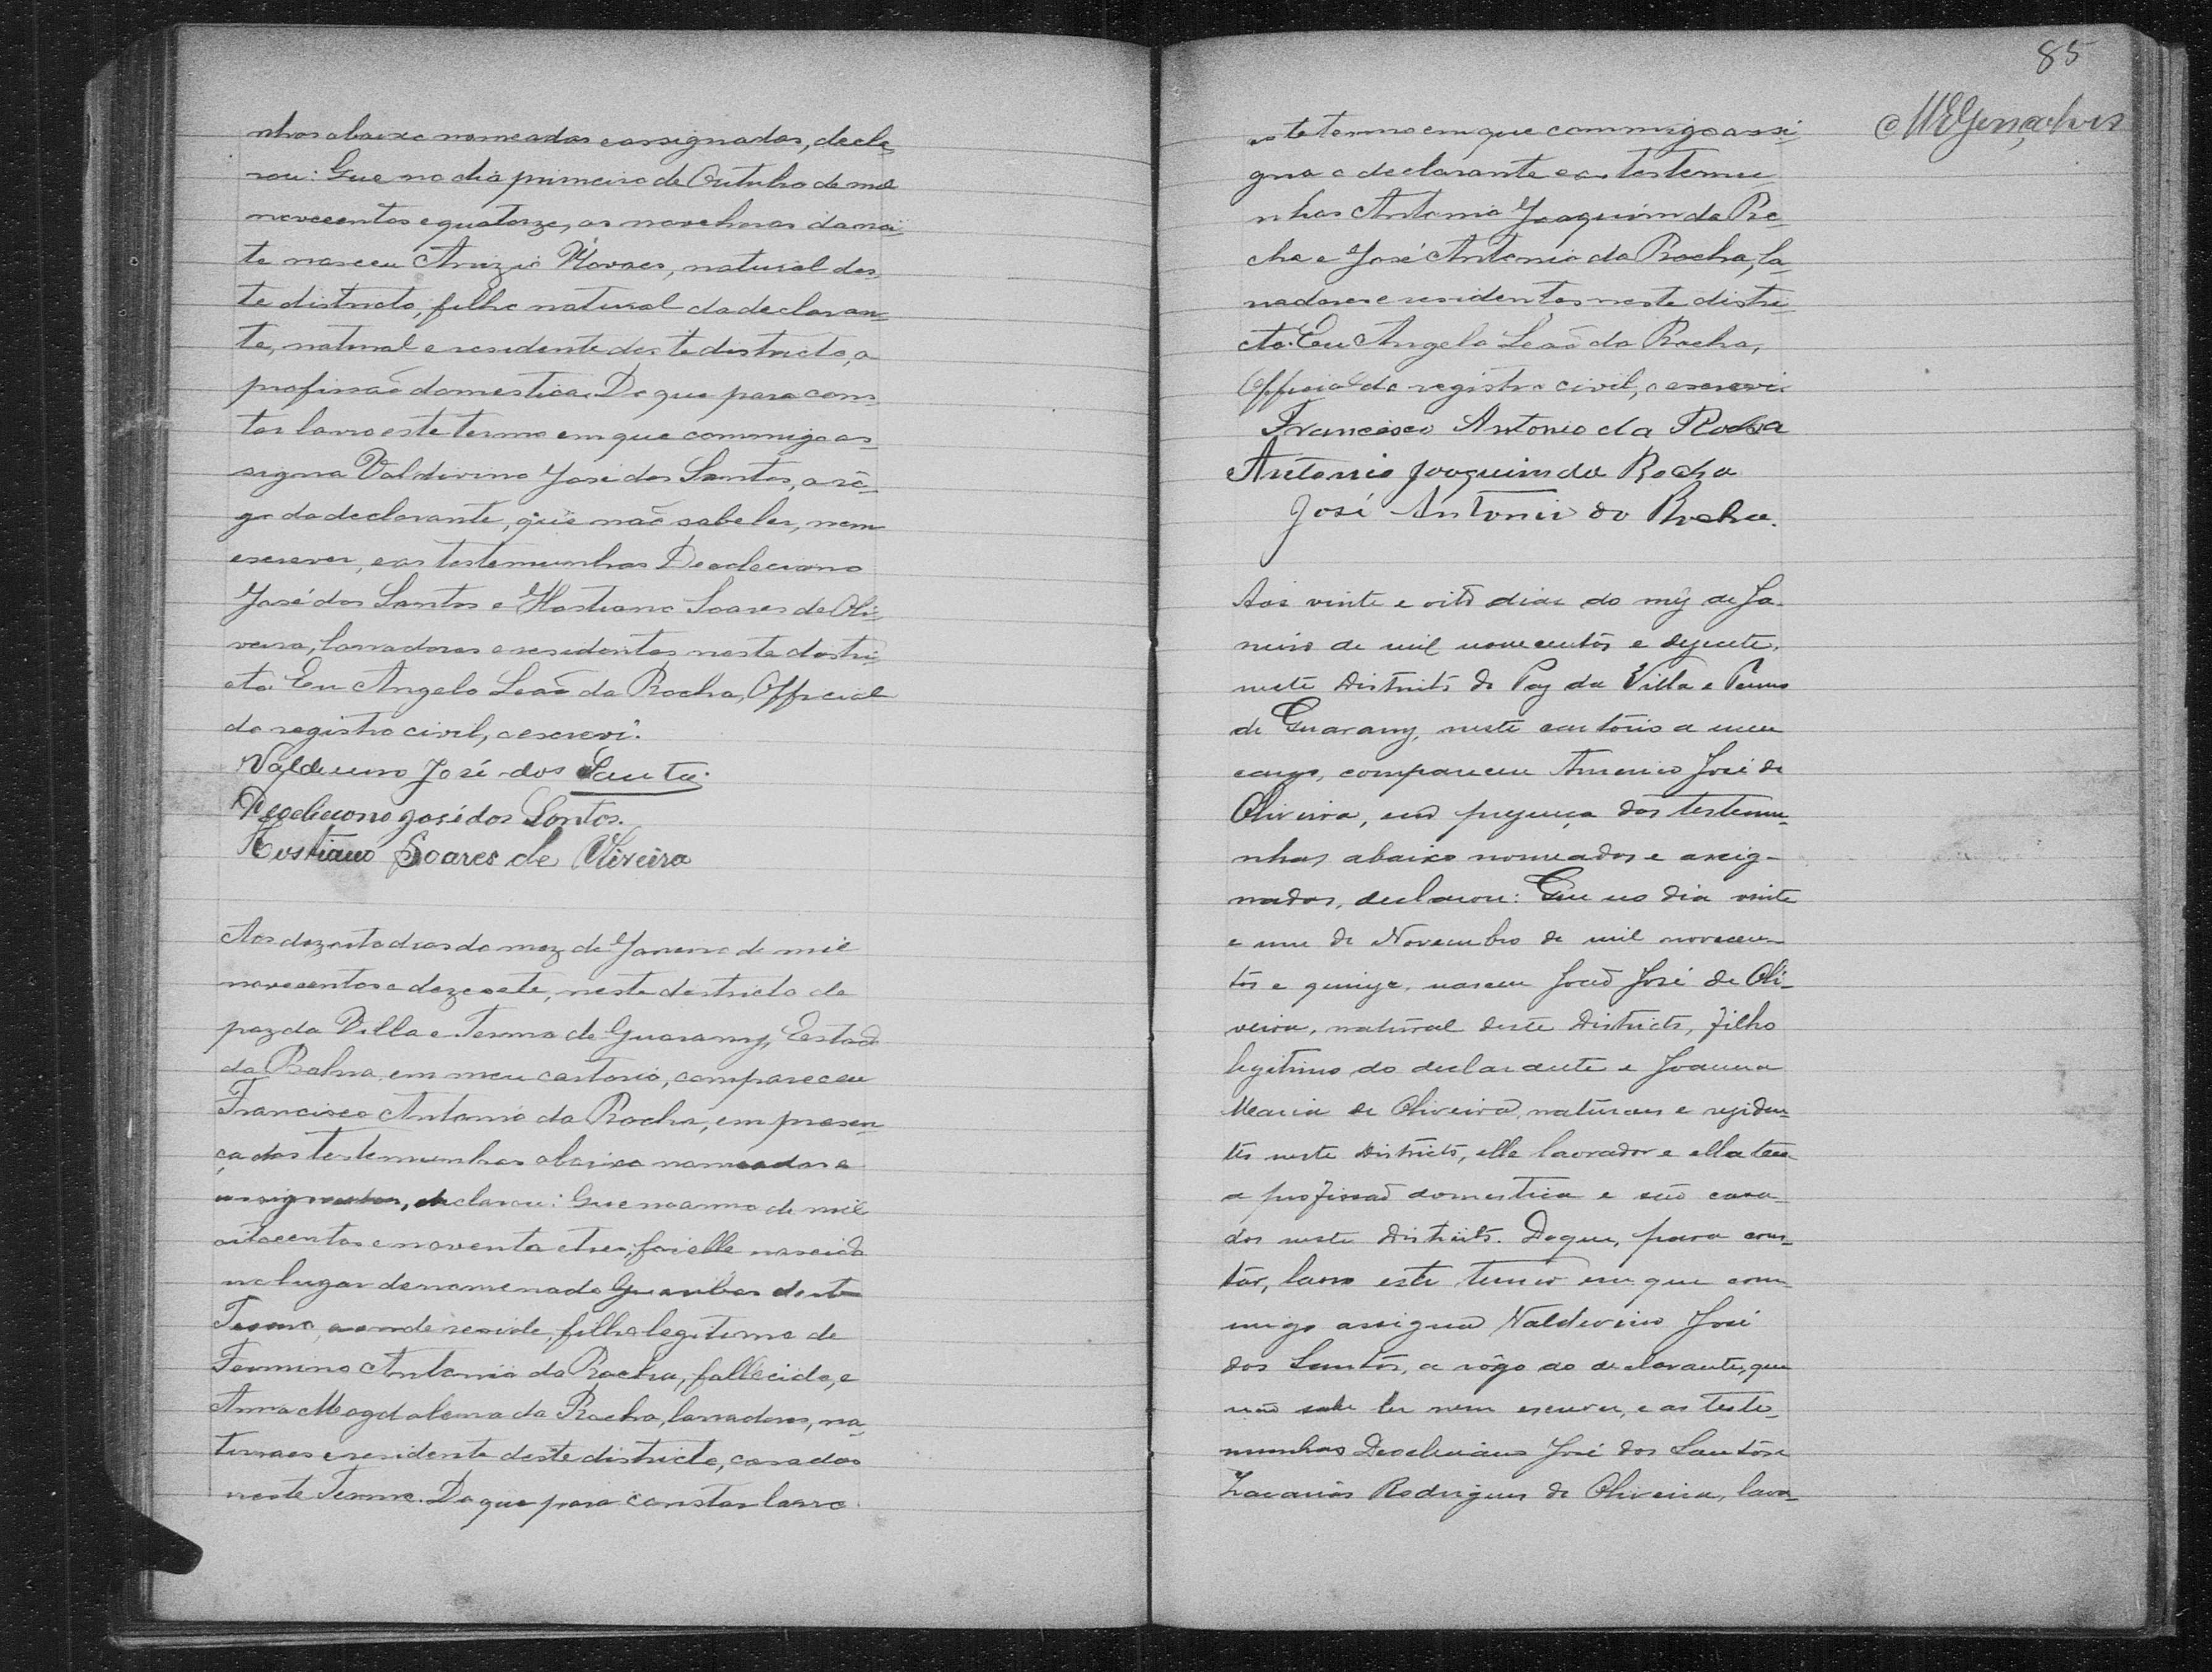 nhas abaixo nomeadas e assignadas, decla-
rou: Que no dia primeiro de Outubro de mil
novecentos e quatorze, as nove horas da noi-
te nasceu Anizio Novaes, natural des-
te districto, filho natural da declaran-
te, natural e residente deste districto, a
profissão domestica. Do que para cons-
tar lavro este termo em que commigo as-
signa Valdivino José dos Santos, a rô-
go da declarante, que não sabe ler, nem
escrever, e as testemunhas Deocleciano
José dos Santos e Hostiano Soares de Oli-
veira, lavradores e residentes neste distri-
cto. Eu Angelo Leão da Rocha, Official
do registro civil, o escrevi.
Valdivino José dos Santos
Deocleciano José dos Santos.
Hostiano Soares de Oliveira
Aos dezoito dias do mez de Janeiro de mil
novecentos e dezesete, neste districto de
paz da Villa e Termo de Guarany, Estado
da Bahia em meu cartorio, compareceu
Francisco Antonio da Rocha, em presen-
ça das testemunhas abaixo nomeadas e
assignadas, declarou: Que no anno de mil
oitocentos e noventa e tres, foi elle nascido
no lugar denomenado Guaribas deste
Termo, aonde reside, filho legitimo de
Firmino Antonio da Rocha, fallecido, e
Anna Magdalena da Rocha, lavradores, na-
turaes e residente deste districto, casados
neste Termo. Do que para constar lavro
85
MEGonçalves
este termo em que commigo assi-
gna o declarante e as testemu-
nhas Antonio Joaquim da Ro-
cha e José Antonio da Rocha, la-
vradores e residentes neste distri-
cto. Eu Angelo Leão da Rocha,
Official do registro civil, o escrevi.
Francisco Antonio da Rocha
Antonio Joaquim da Rocha
José Antonio da Rocha.
Aos vinte e oito dias do mez de Ja-
neiro de mil novecentos e dezesete,
neste Districto de Paz da Villa e Termo
de Guarany, neste cartório a meu
cargo, compareceu Americo José de
Oliveira, em prezença das testemu-
nhas abaixo nomeados e assig-
nados, declarou: Que no dia vinte
e um de Novembro de mil novecen-
tos e quinze, nasceu João José de Oli-
veira, natural deste Districto, filho
legitimo do declarante e Joanna
Maria de Oliveira, naturaes e reziden-
tes neste Districto, elle lavrador e ella tem
a profissão domestica e são casa-
dos neste Districto. Do que, para cons-
tar, lavro este termo em que com-
migo assigna Valdivino José
dos Santos, a rôgo do declarante, que
não sabe ler nem escrever, e as teste-
munhas Deocleciano José dos Santos e
Zacarias Rodrigues de Oliveira, lavra-